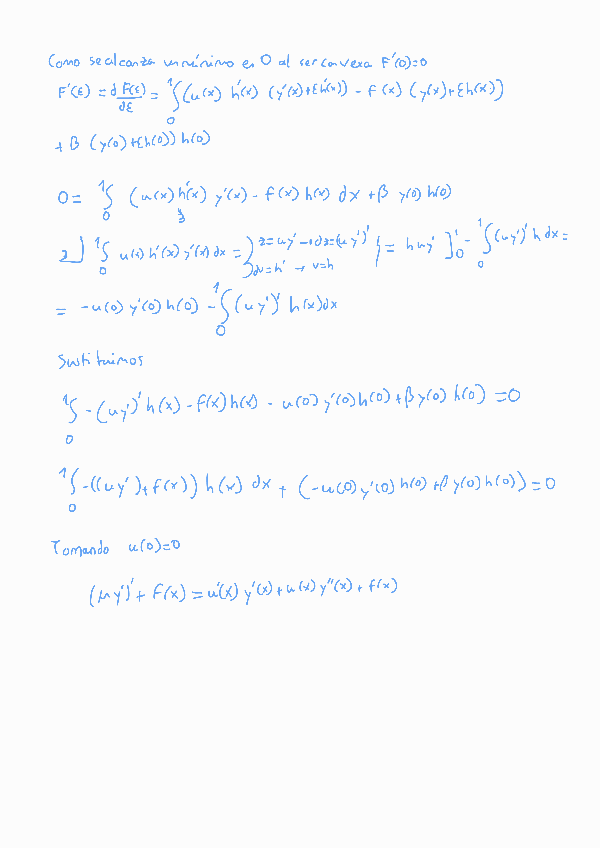 Como se alcanza un mínimo en 0 al ser convexa F'(0)=0
F'(ε) = dF(ε)/dε = ∫₀¹ (u(x) h'(x) (y'(x)+εh'(x)) - f(x) (y(x)+εh(x))
+ β (y(0)+εh(0)) h(0)
0 = ∫₀¹ (u(x) h'(x) y'(x) - f(x) h(x) dx + β y(0) h(0)
2) ∫₀¹ u(x) h'(x) y'(x) dx = } z = uy' → dz = (uy')' dv = h' → v = h { = h u y' ]₀¹ - ∫₀¹ (uy')' h dx =
= -u(0) y'(0) h(0) - ∫₀¹ (uy')' h(x) dx
Sustituimos
∫₀¹ -(uy')' h(x) - f(x) h(x) - u(0) y'(0) h(0) + β y(0) h(0) = 0
∫₀¹ -((uy') + f(x)) h(x) dx + (-u(0) y'(0) h(0) + β y(0) h(0)) = 0
Tomando u(0)=0
(μy')' + f(x) = u'(x) y'(x) + u(x) y''(x) + f(x)